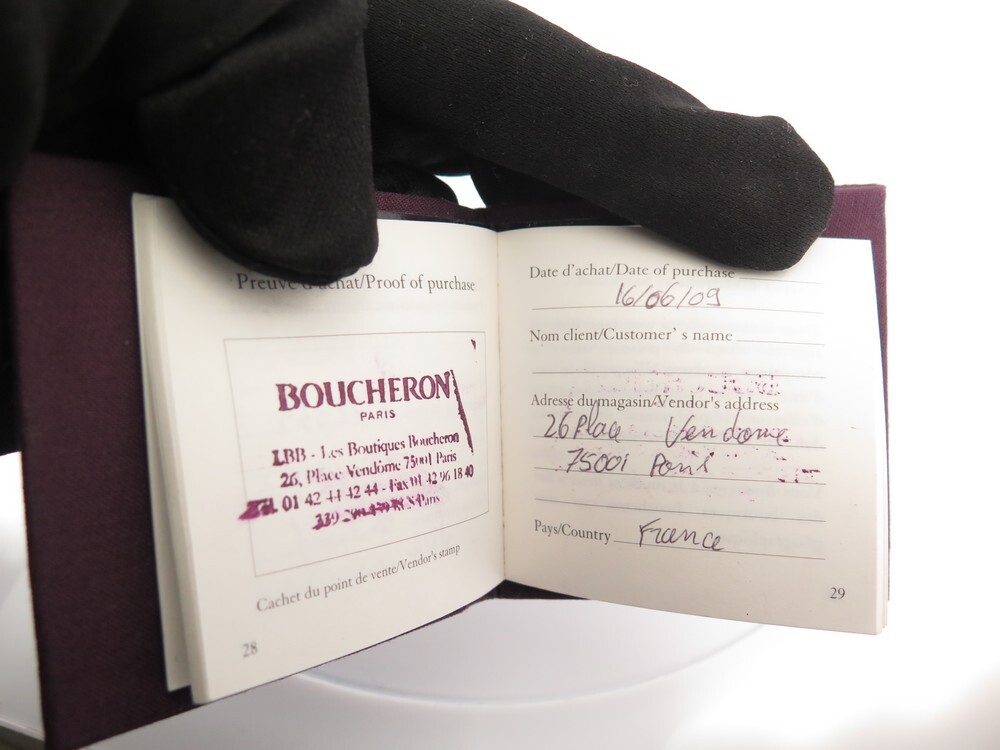 Preuve d'achat/Proof of purchase
BOUCHERON
PARIS
LBB - Les Boutiques Boucheron
26, Place Vendôme 75001 Paris
Tél. 01 42 44 42 44 - Fax 01 42 96 18 40
Paris
Cachet du point de vente/Vendor's stamp
28
Date d'achat/Date of purchase
16/06/09
Nom client/Customer' s name
Adresse du magasin/Vendor's address
26 Place Vendome
75001 Paris
Pays/Country France
29